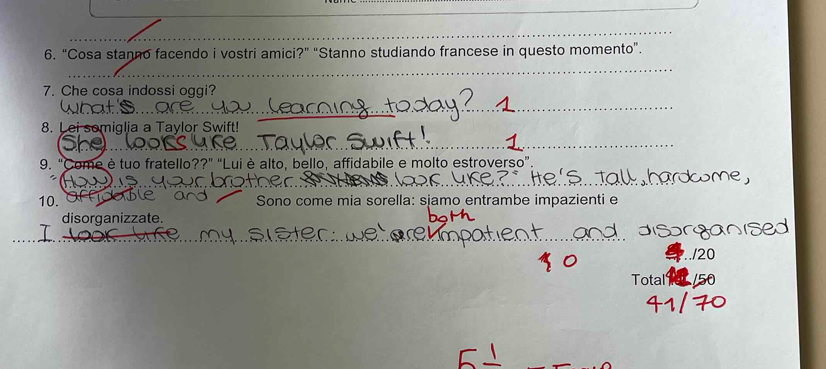 6. "Cosa stanno facendo i vostri amici?" "Stanno studiando francese in questo momento".
7. Che cosa indossi oggi?
What's are you learning today? 1
8. Lei somiglia a Taylor Swift!
She looks like Taylor Swift! 1
9. "Come è tuo fratello??" "Lui è alto, bello, affidabile e molto estroverso".
"How is your brother look like?" He's tall, handsome,
affidable and
10. Sono come mia sorella: siamo entrambe impazienti e
disorganizzate.
both
I look like my sister: we're impatient and disorganised
0
/20
Total /50
41/70